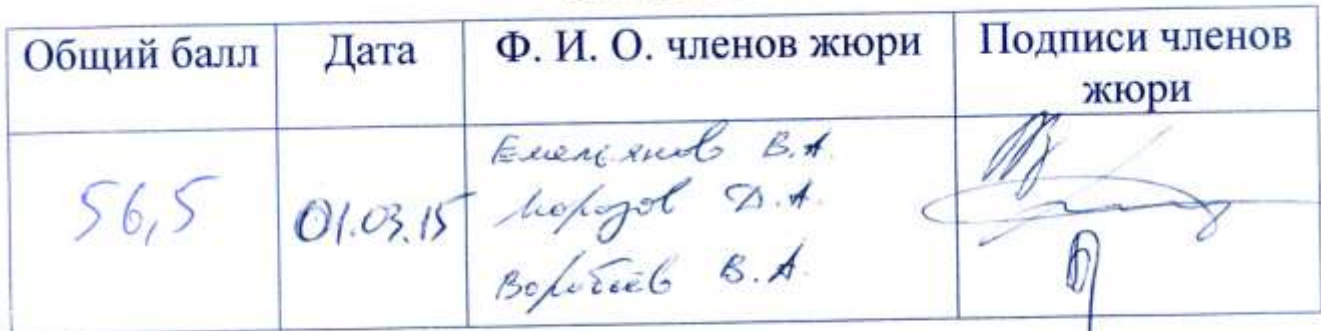 Общий балл Дата Ф. И. О. членов жюри Подписи членов
жюри
56,5 01.03.15 Емельянов В.А.
Морозов Д.А.
Воробьёв В.А.